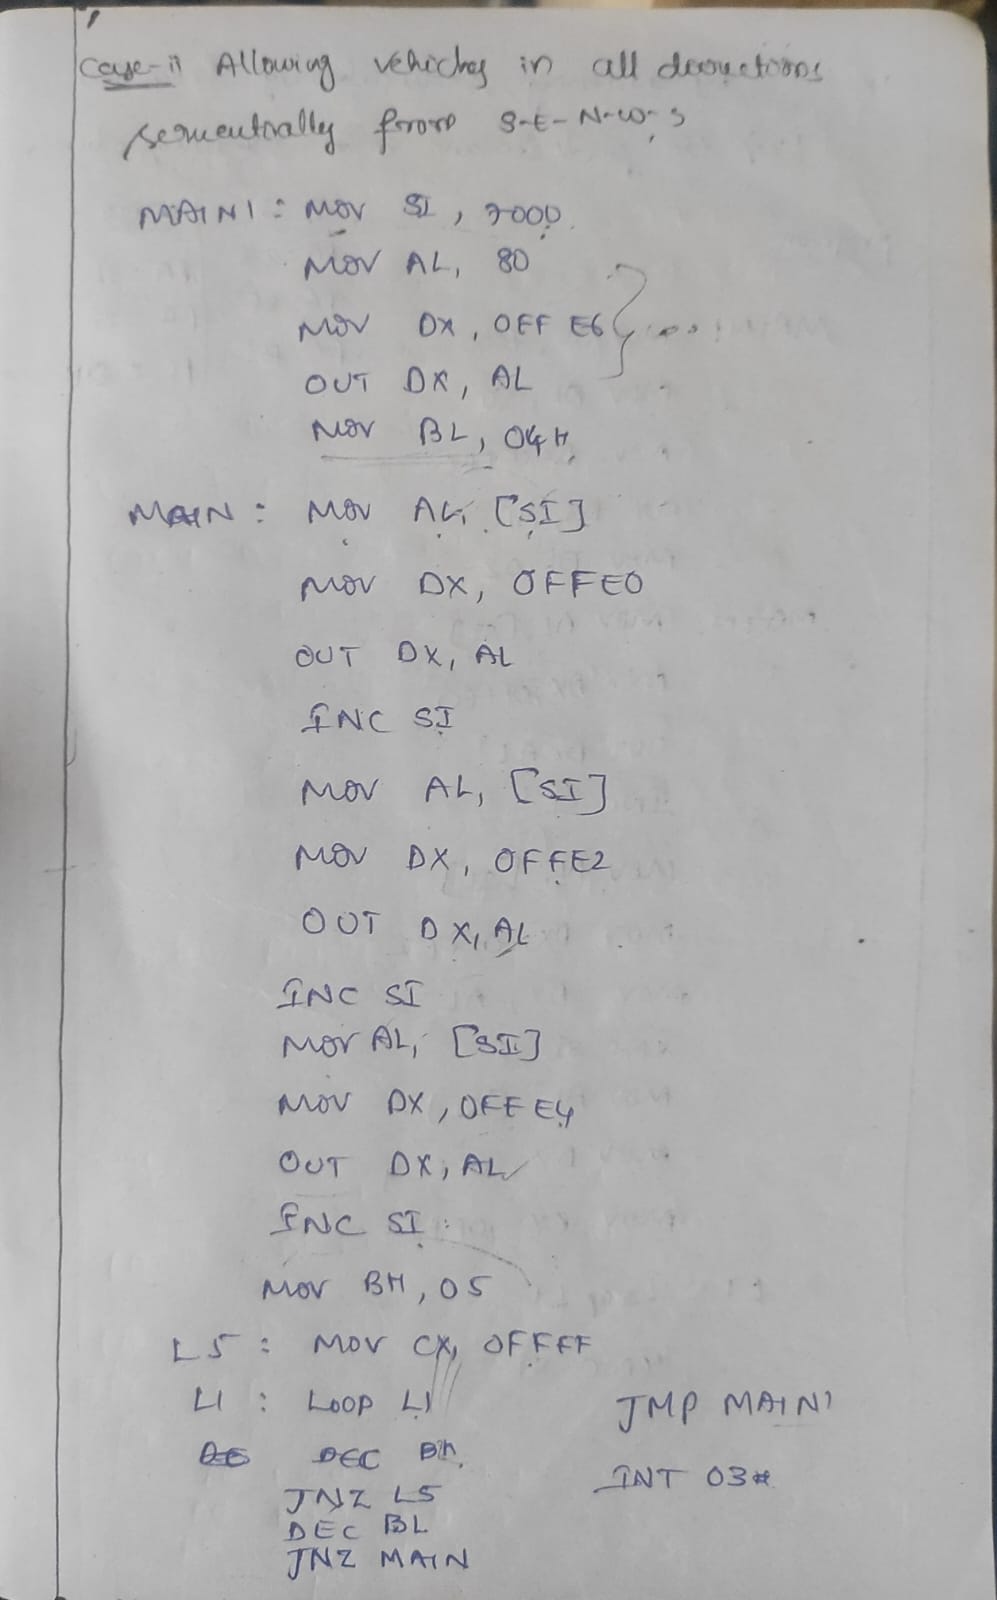 Case-ii Allowing vehicles in all directions
sequentially from S-E-N-W-S
MAIN1 : MOV SI, 7000
MOV AL, 80
MOV DX, OFFE6
OUT DX, AL
MOV BL, 04H
MAIN : MOV AL, [SI]
MOV DX, OFFE0
OUT DX, AL
INC SI
MOV AL, [SI]
MOV DX, OFFE2
OUT DX, AL
INC SI
MOV AL, [SI]
MOV DX, OFFE4
OUT DX, AL
INC SI
MOV BH, 05
L5 : MOV CX, OFFFF
L1 : LOOP L1
DEC BH
JNZ L5
DEC BL
JNZ MAIN
JMP MAIN1
INT 03H